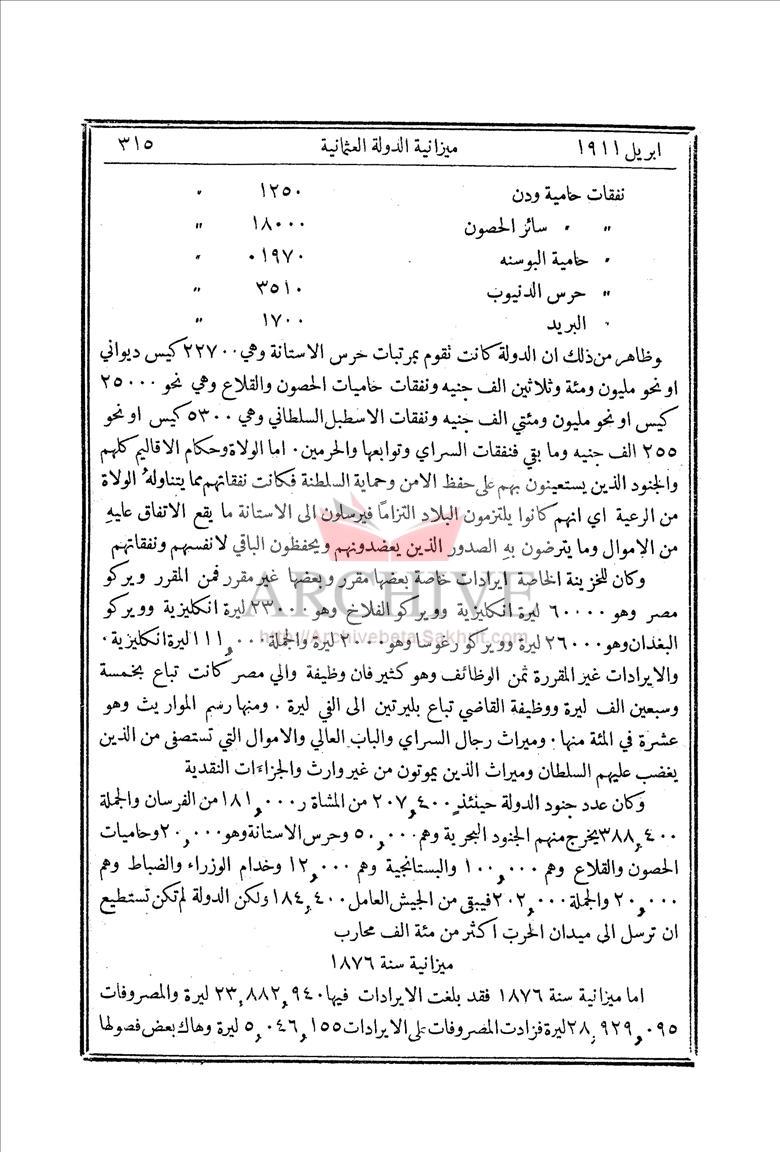 ابريل ١٩١١ ميزانية الدولة العثمانية ٣١٥
نفقات حامية ودن ١٢٥٠ "
" " سائر الحصون ١٨٠٠٠ "
" حامية البوسنه ٠١٩٧٠ "
" حرس الدنيوب ٣٥١٠ "
" البريد ١٧٠٠ "
وظاهر من ذلك ان الدولة كانت تقوم بمرتبات حرس الاستانة وهي ٢٢٧٠٠ كيس ديواني
او نحو مليون ومئة وثلاثين الف جنيه ونفقات حاميات الحصون والقلاع وهي نحو ٢٥٠٠٠
كيس او نحو مليون ومئتي الف جنيه ونفقات الاسطبل السلطاني وهي ٥٣٠٠ كيس او نحو
٢٥٥ الف جنيه وما بقي فنفقات السراي وتوابعها والحرمين٠ اما الولاة وحكام الاقاليم كلهم
والجنود الذين يستعينون بهم على حفظ الامن وحماية السلطنة فكانت نفقاتهم مما يتناولهُ الولاة
من الرعية اي انهم كانوا يلتزمون البلاد التزاماً فيرسلون الى الاستانة ما يقع الاتفاق عليهِ
من الاموال وما يترضون بهِ الصدور الذين يعضدونهم ويحفظون الباقي لانفسهم ونفقاتهم
وكان للخزينة الخاصة ايرادات خاصة بعضها مقرر وبعضها غير مقرر فمن المقرر ويركو
مصر وهو ٦٠٠٠٠ ليرة انكليزية وويركو الفلاخ وهو ٢٣٠٠٠ ليرة انكليزية وويركو
البغدان وهو ٢٦٠٠٠ ليرة وويركو رغوسا وهو ٢٠٠٠ ليرة والجملة ١١١,٠٠٠ ليرة انكليزية٠
والايرادات غير المقررة ثمن الوظائف وهو كثير فان وظيفة والي مصر كانت تباع بخمسة
وسبعين الف ليرة ووظيفة القاضي تباع بليرتين الى الفي ليرة ٠ ومنها رسم المواريث وهو
عشرة في المئة منها٠ وميراث رجال السراي والباب العالي والاموال التي تستصفى من الذين
يغضب عليهم السلطان وميراث الذين يموتون من غير وارث والجزاءات النقدية
وكان عدد جنود الدولة حينئذٍ ٢٠٧,٤٠٠ من المشاة ر ١٨١,٠٠٠ من الفرسان والجملة
٣٨٨,٤٠٠ يخرج منهم الجنود البحرية وهم ٥٠,٠٠٠ وحرس الاستانة وهو ٢٠,٠٠٠ وحاميات
الحصون والقلاع وهم ١٠٠,٠٠٠ والبستانجية وهم ١٢,٠٠٠ وخدام الوزراء والضباط وهم
٢٠,٠٠٠ والجملة ٢٠٢,٠٠٠ فيبقى من الجيش العامل ١٨٤,٤٠٠ ولكن الدولة لم تكن تستطيع
ان ترسل الى ميدان الحرب اكثر من مئة الف محارب
ميزانية سنة ١٨٧٦
اما ميزانية سنة ١٨٧٦ فقد بلغت الايرادات فيها ٢٣,٨٨٢,٩٤٠ ليرة والمصروفات
٢٨,٩٢٩,٠٩٥ ليرة فزادت المصروفات على الايرادات ٥,٠٤٦,١٥٥ ليرة وهاك بعض فصولها
ARCHIVE
http://Archivebeta.Sakhrit.com